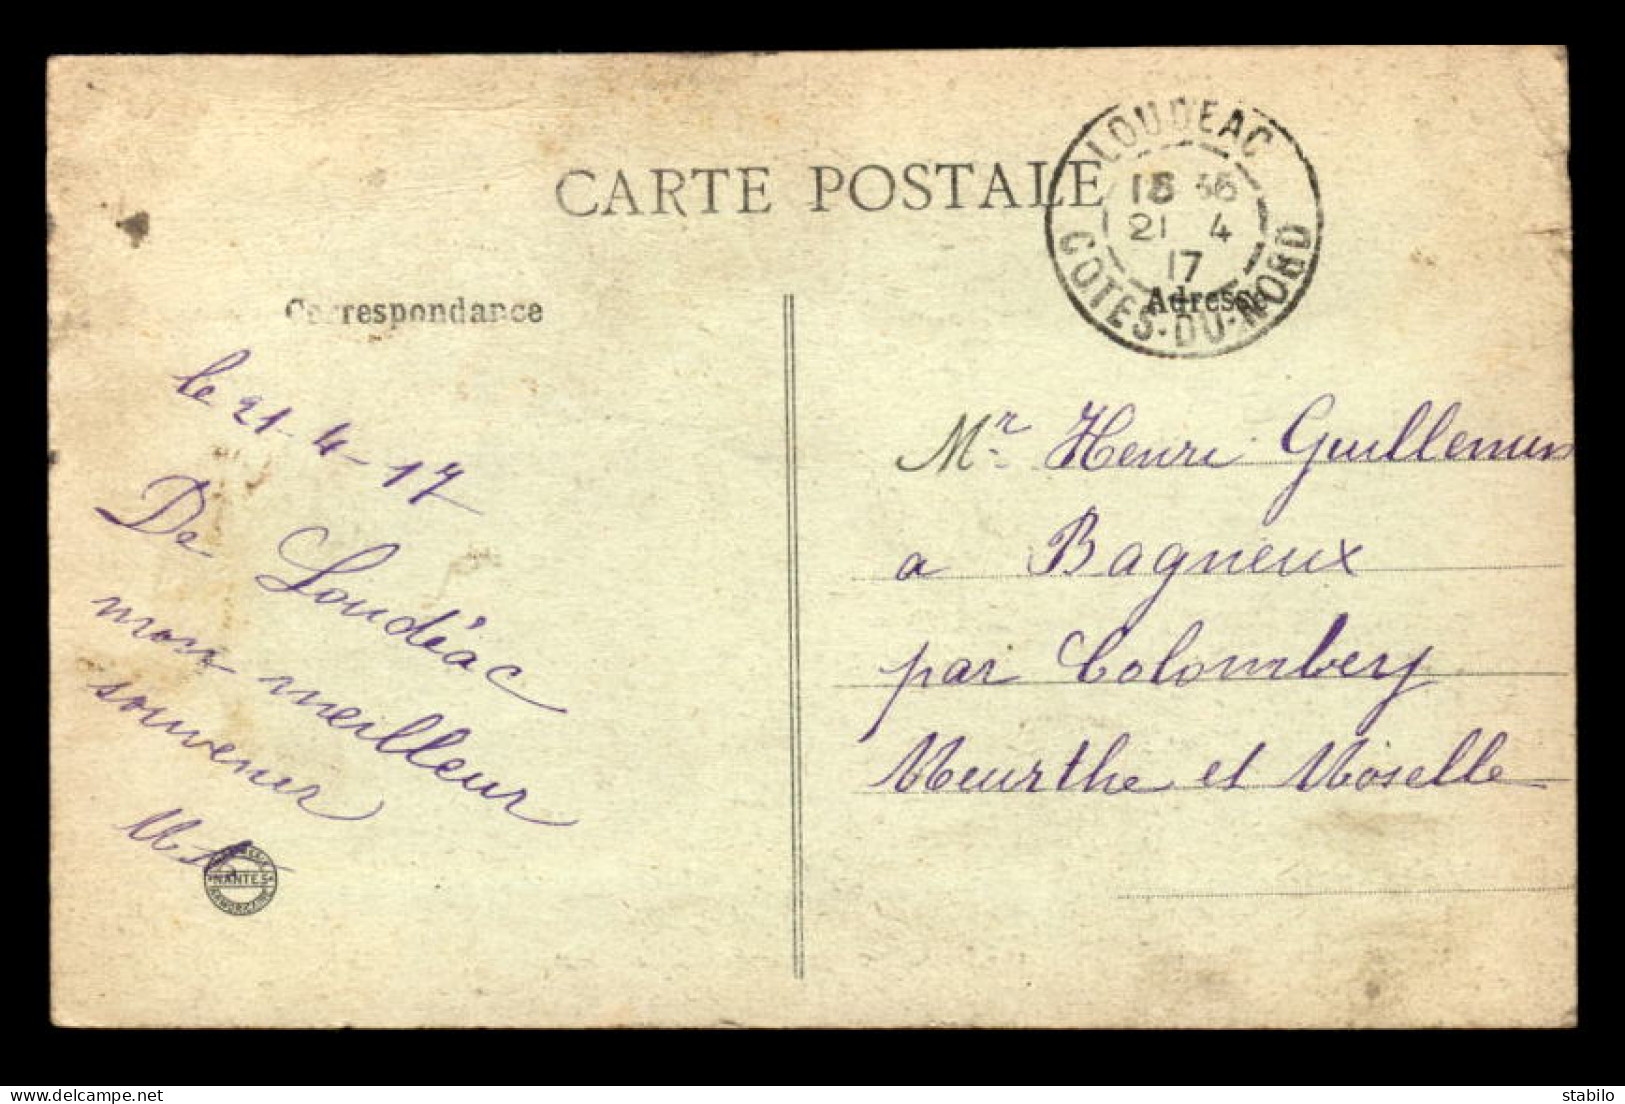 CARTE POSTALE
LOUDEAC
21 4
17
COTES-DU-NORD
Correspondance
Adresse
le 21-4-17
De Loudéac
mon meilleur
souvenir
Mr Henri Guillemin
a Bagneux
par Colombey
Meurthe et Moselle
NANTES
ARMORICAINE
stabilo
delcampe.net